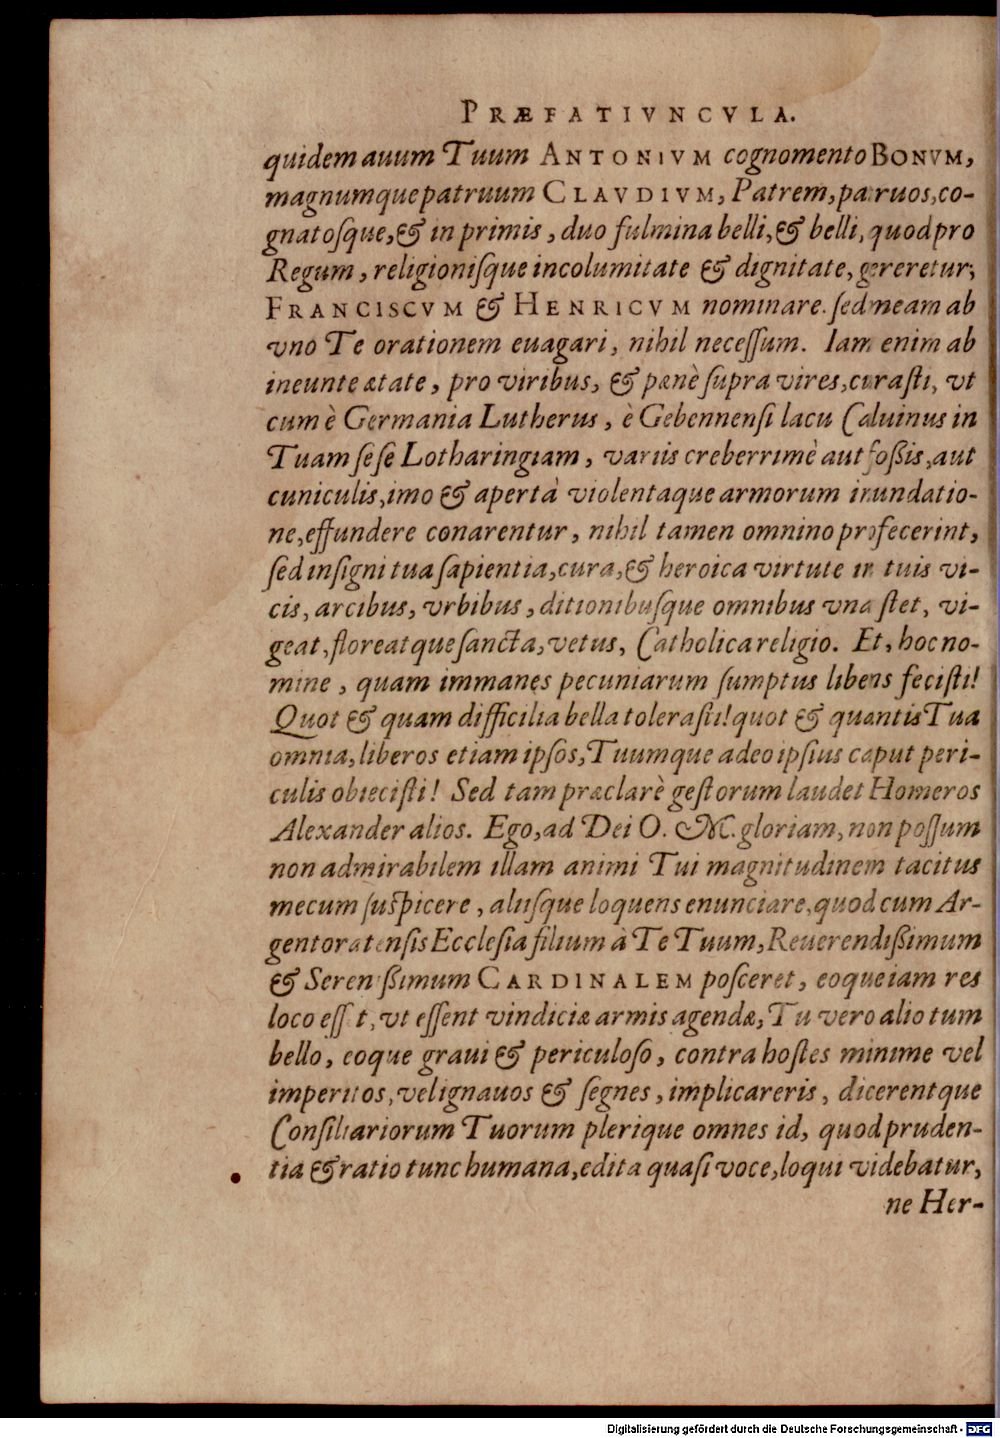 PRÆFATIVNCVLA.
quidem auum Tuum ANTONIVM cognomento BONVM,
magnumque patruum CLAVDIVM, Patrem, patruos, co-
gnatosque, & in primis, duo fulmina belli, & belli, quod pro
Regum, religionisque incolumitate & dignitate, gereretur;
FRANCISCVM & HENRICVM nominare. sed meam ab
vno Te orationem euagari, nihil necessum. Iam enim ab
ineunte ætate, pro viribus, & pænè supra vires, curasti, vt
cum è Germania Lutherus, è Gebennensi lacu Caluinus in
Tuam sese Lotharingiam, variis creberrimè aut fossis, aut
cuniculis, imo & apertà violentaque armorum inundatio-
ne, effundere conarentur, nihil tamen omnino profecerint,
sed insigni tua sapientia, cura, & heroica virtute in tuis vi-
cis, arcibus, vrbibus, ditionibusque omnibus vna stet, vi-
geat, floreatque sancta, vetus, Catholica religio. Et, hoc no-
mine, quam immanes pecuniarum sumptus libens fecisti!
Quot & quam difficilia bella tolerasti! quot & quantis Tua
omnia, liberos etiam ipsos, Tuumque adeo ipsius caput peri-
culis obiecisti! Sed tam præclarè gestorum laudet Homeros
Alexander alios. Ego, ad Dei O. M. gloriam, non possum
non admirabilem illam animi Tui magnitudinem tacitus
mecum suspicere, aliisque loquens enunciare, quod cum Ar-
gentoratensis Ecclesia filium à Te Tuum, Reuerendissimum
& Serenissimum CARDINALEM posceret, eoque iam res
loco esset, vt essent vindiciæ armis agendæ, Tu vero alio tum
bello, eoque graui & periculoso, contra hostes minime vel
imperitos, vel ignauos & segnes, implicareris, dicerentque
Consiliariorum Tuorum plerique omnes id, quod pruden-
tia & ratio tunc humana, edita quasi voce, loqui videbatur,
ne Her-
Digitalisierung gefördert durch die Deutsche Forschungsgemeinschaft - DFG